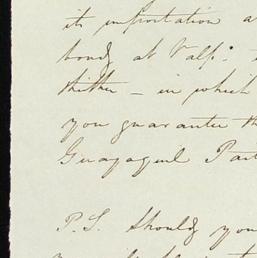 its importation a
bond, at Valp:
thither – in which
you guarantee th
Guayaquil Part
P.S. Should you